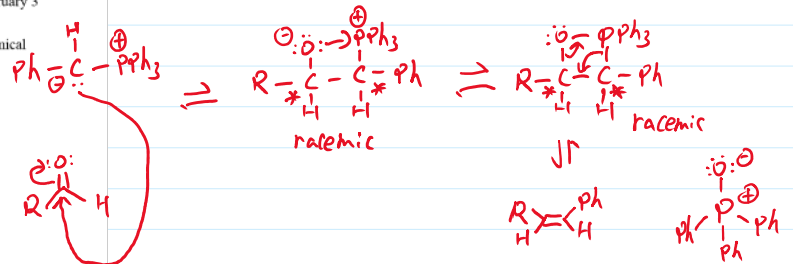 uary 3
nical
H
Ph - C - PPh3
⊕
⊖
:O:
R H
⊖ :Ö: PPh3 ⊕
R - C - C - Ph
* *
H H
racemic
:O - PPh3
R - C - C - Ph
* *
H H
racemic
R Ph
H H
:Ö: ⊖
P ⊕
Ph Ph
Ph